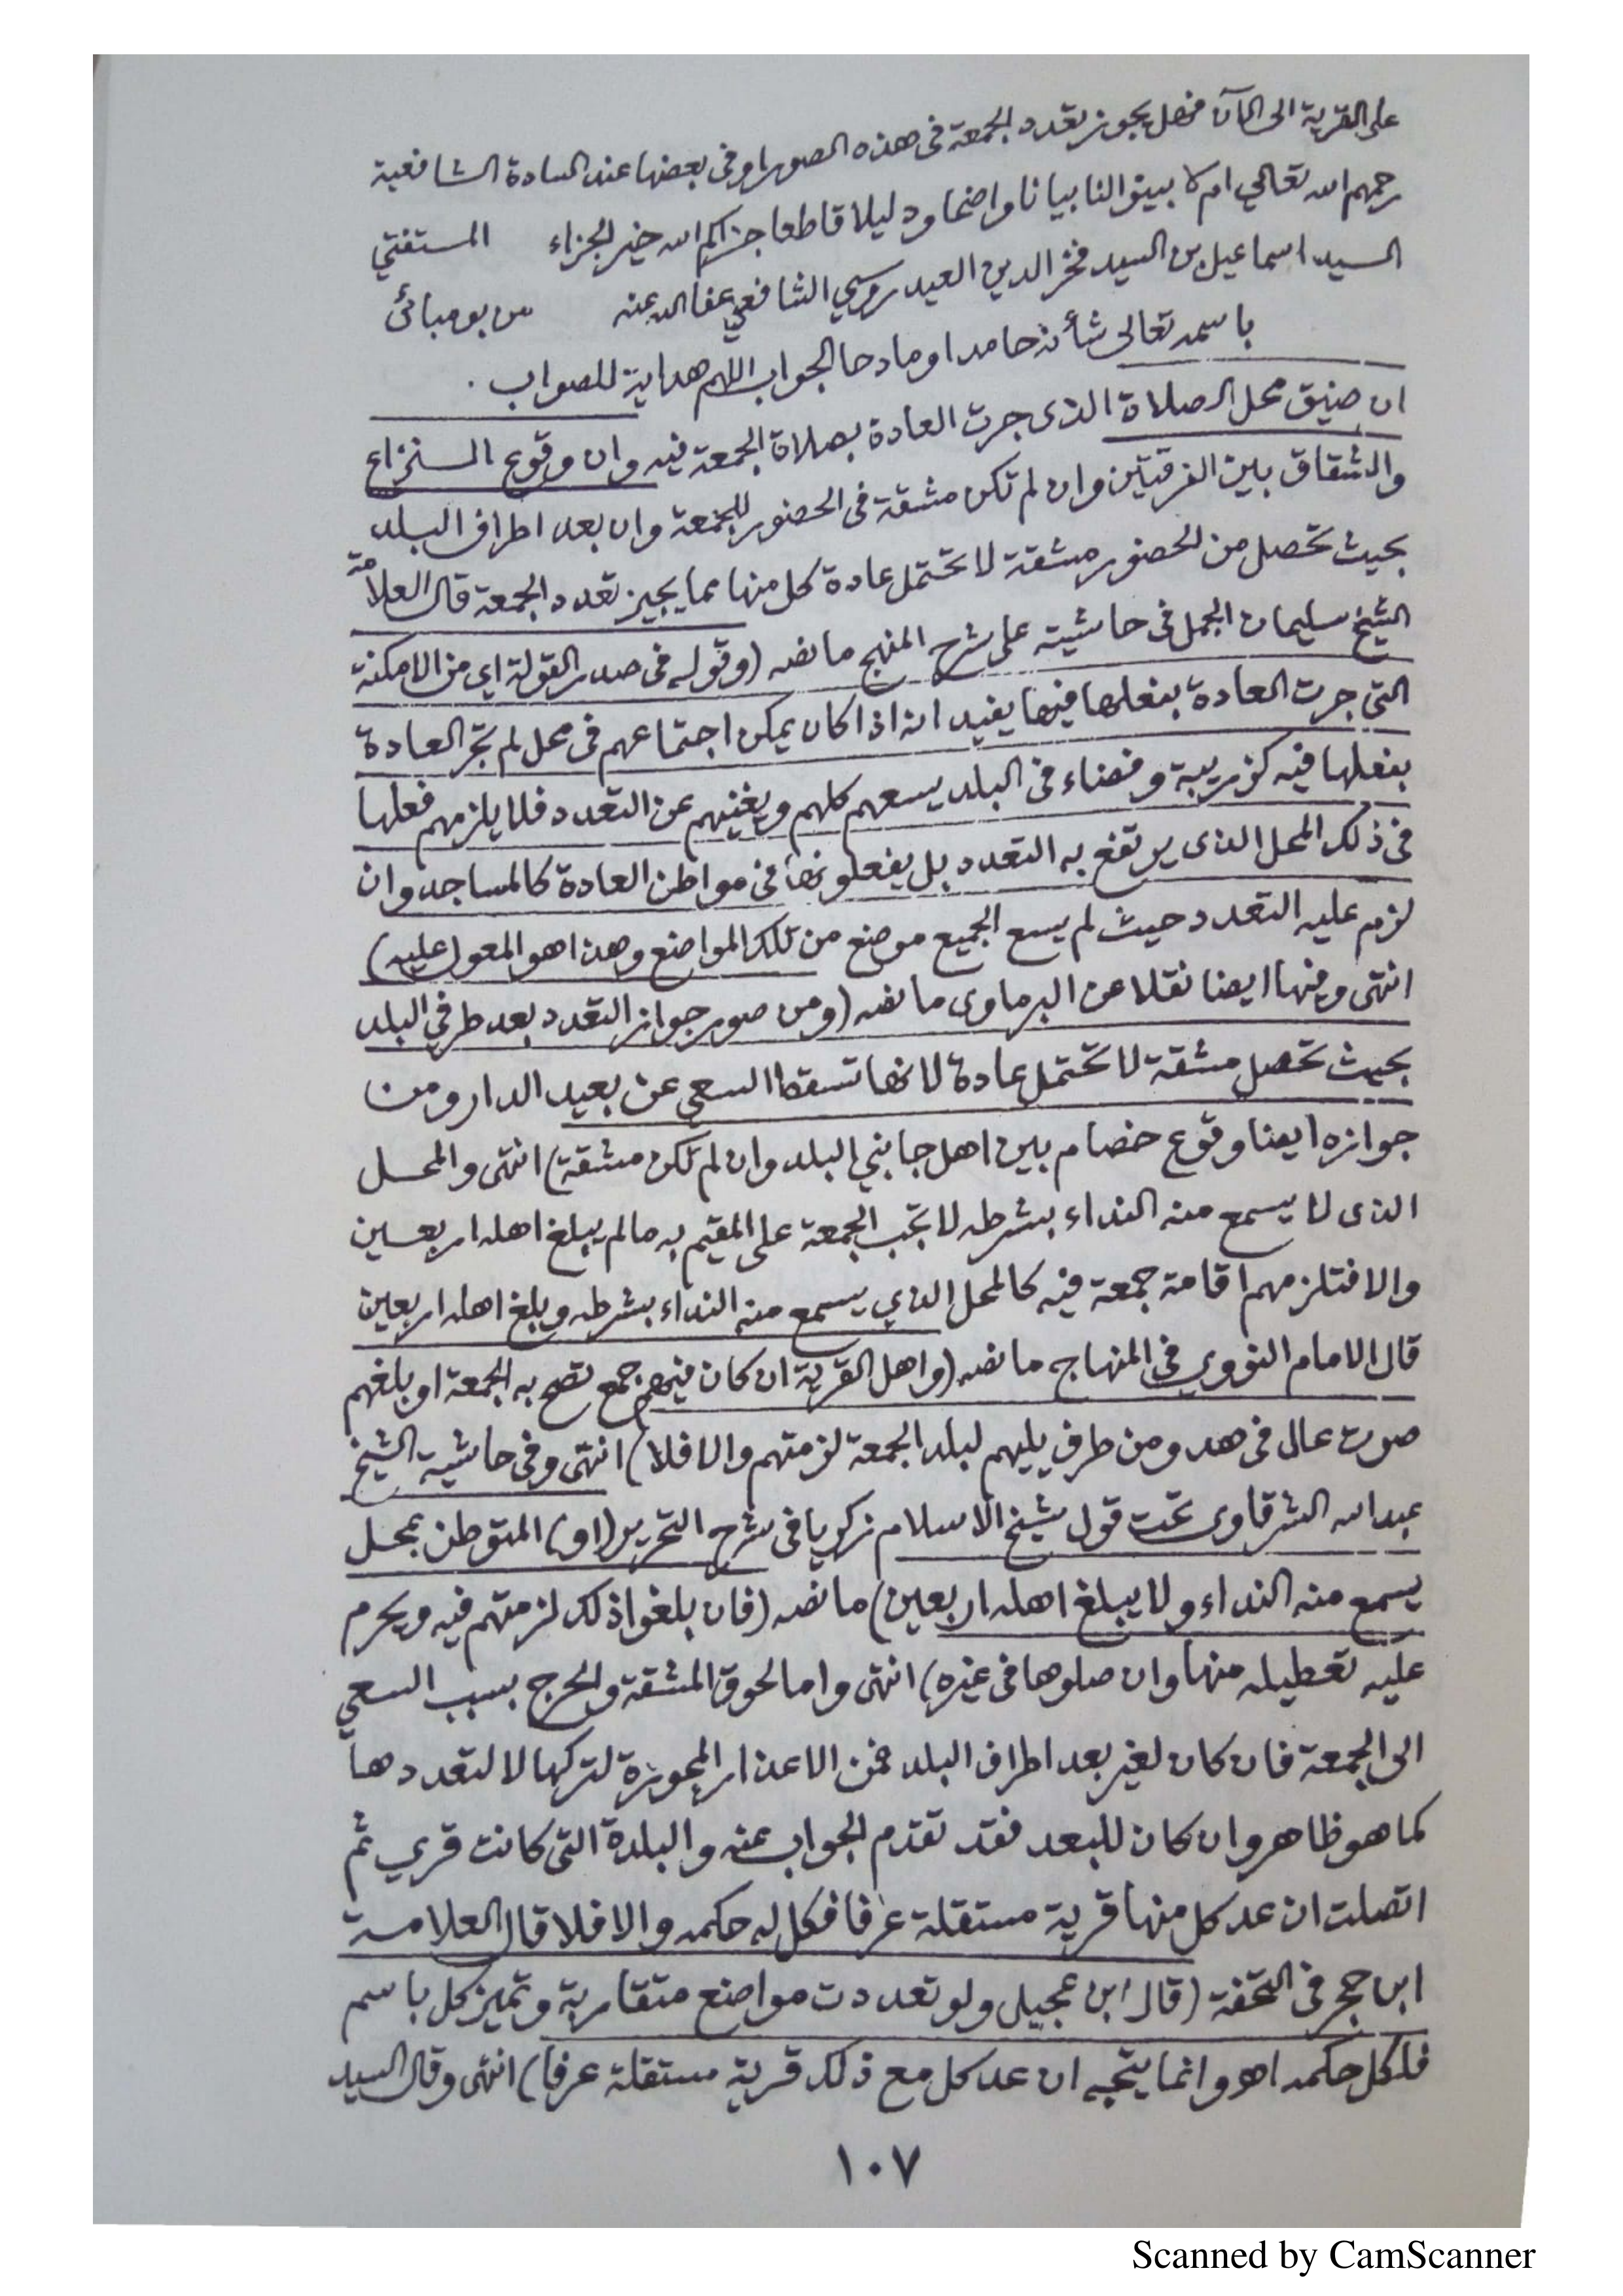 على القرية الى الآن فهل يجوز تعدد الجمعة فى هذه الصور او فى بعضها عند السادة الشافعية
رحمهم الله تعالى ام لا بينوا لنا بيانا واضحا ودليلا قاطعا جزاكم الله خير الجزاء المستفتي
السيد اسماعيل بن السيد فخر الدين العيدروسي الشافعي عفا الله عنه من بومبائى
باسمه تعالى شأنه حامدا ومادحا الجواب اللهم هداية للصواب .
ان ضيق محل الصلاة الذى جرت العادة بصلاة الجمعة فيه وان وقوع النزاع
والشقاق بين الفرقتين وان لم تكن مشقة فى الحضور للجمعة وان بعد اطراف البلد
بحيث تحصل من الحضور مشقة لا تحتمل عادة كل منها مما يجيز تعدد الجمعة قال العلامة
الشيخ سليمان الجمل فى حاشيته على شرح المنهج ما نصه (وقوله فى صدر القولة اى من الامكنة
التى جرت العادة بفعلها فيها يفيد انه اذا كان يمكن اجتماعهم فى محل لم تجر العادة
بفعلها فيه كزريبة وفضاء فى البلد يسعهم كلهم ويغنيهم عن التعدد فلا يلزمهم فعلها
فى ذلك المحل الذى يرتفع به التعدد بل يفعلونها فى مواطن العادة كالمساجد وان
لزم عليه التعدد حيث لم يسع الجميع موضع من تلك المواضع وهذا هو المعول عليه)
انتهى وفيها ايضا نقلا عن البرماوى ما نصه (ومن صور جواز التعدد بعد طرفي البلد
بحيث تحصل مشقة لا تحتمل عادة لانها تسقط السعي عن بعيد الدار ومن
جوازه ايضا وقوع خصام بين اهل جانبي البلد وان لم تكن مشقة) انتهى والمحل
الذى لا يسمع منه النداء بشرطه لا تجب الجمعة على المقيم به مالم يبلغ اهله اربعين
والا فتلزمهم اقامة جمعة فيه كالمحل الذي يسمع منه النداء بشرطه ويبلغ اهله اربعين
قال الامام النووي فى المنهاج ما نصه (واهل القرية ان كان فيهم جمع تصح به الجمعة او بلغهم
صوت عال فى هدو من طرف يليهم لبلد الجمعة لزمتهم والا فلا) انتهى وفى حاشية الشيخ
عبد الله الشرقاوى تحت قول شيخ الاسلام زكريا فى شرح التحرير (او) المتوطن بمحل
يسمع منه النداء ولا يبلغ اهله اربعين) ما نصه (فان بلغوا ذلك لزمتهم فيه ويحرم
عليه تعطيله منها وان صلوها فى غيره) انتهى واما لحوق المشقة والحرج بسبب السعي
الى الجمعة فان كان لغير بعد اطراف البلد فمن الاعذار المجوزة لتركها لا لتعددها
كما هو ظاهر وان كان للبعد فقد تقدم الجواب عنه والبلدة التى كانت قري ثم
اتصلت ان عد كل منها قرية مستقلة عرفا فكل له حكمه والا فلا قال العلامة
ابن حجر فى التحفة (قال ابن عجيل ولو تعددت مواضع متقاربة وتميز كل باسم
فلكل حكمه اهـ وانما يتجه ان عد كل مع ذلك قرية مستقلة عرفا) انتهى وقال السيد
١٠٧
Scanned by CamScanner